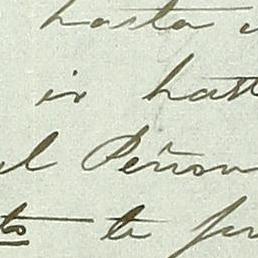 hasta
ir hast
al Peñon
to te